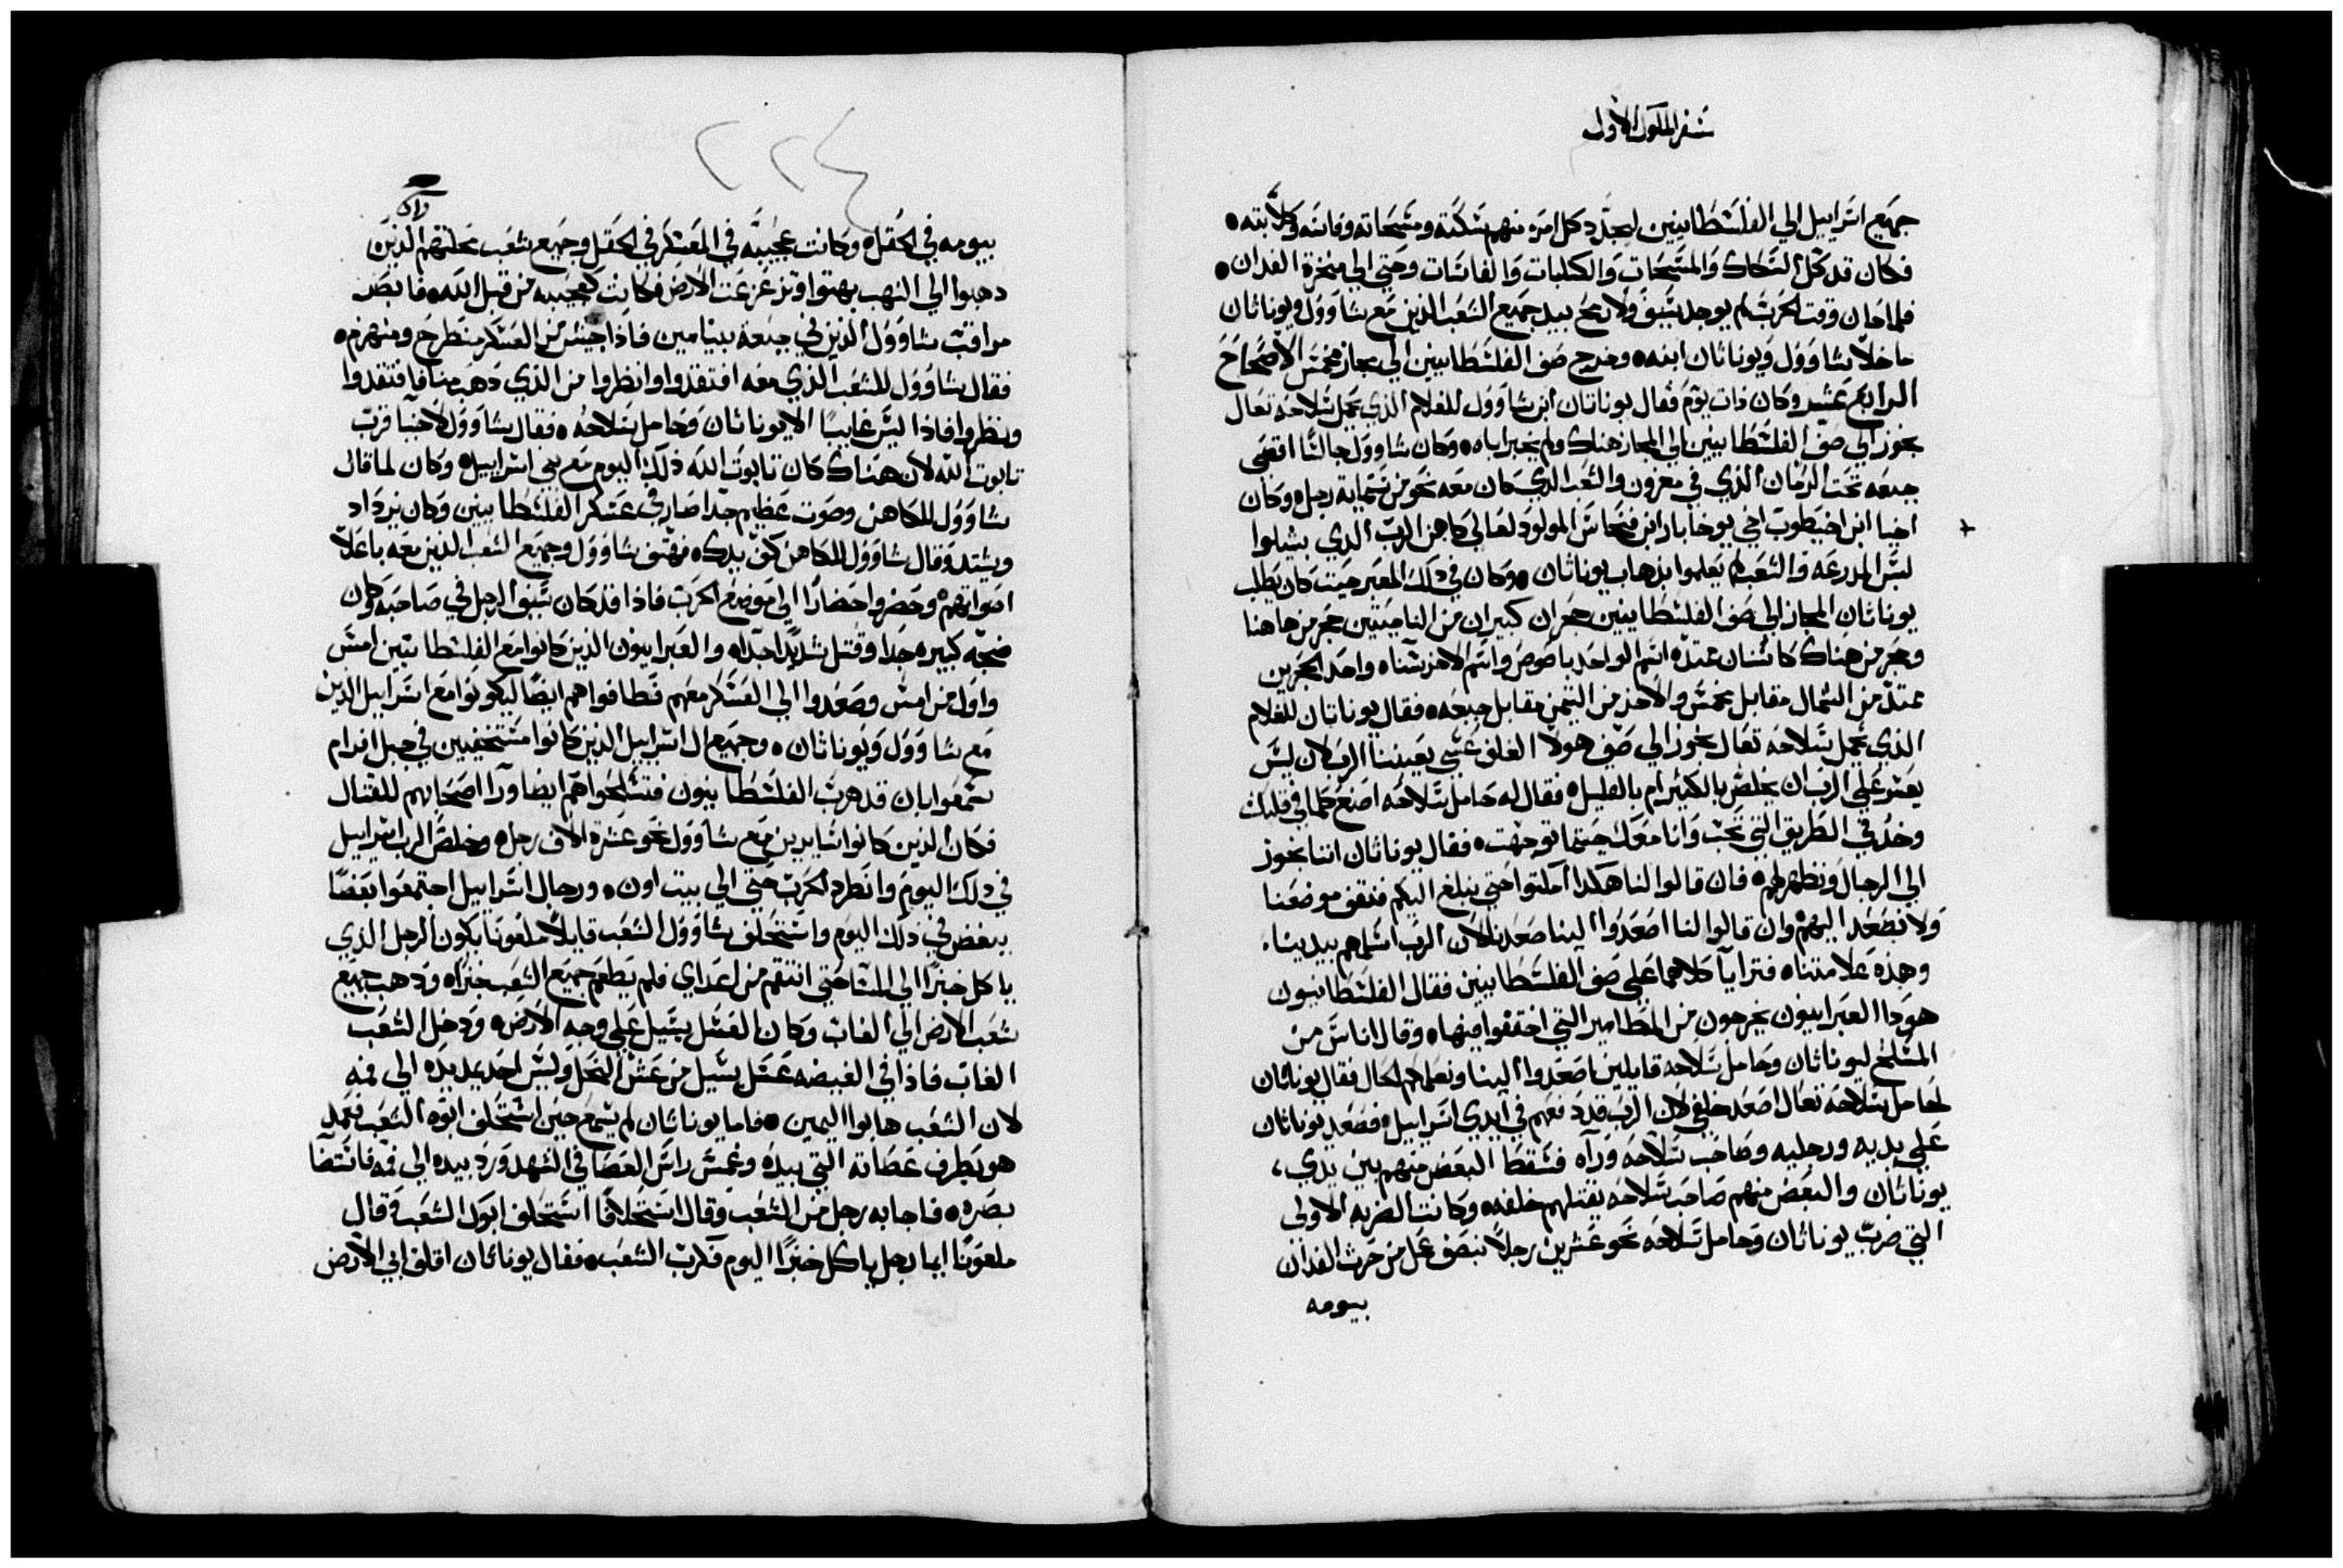 سفر الملوك الاول
جميع اسراييل الي الفلسطانيين ليحدد كل امره منهم سكته ومسحاته وفاسه وكلابته
فكان قد كل السكاك والمسحات والكلبات والفاسات وحتي الي منخرة الفدان
فلما حان وقت الحرب لم يوجد سيف ولا رمح بيد جميع الشعب الذين مع شاوول ويوناثان
ما خلا شاوول ويوناثان ابنه وخرج صف الفلسطانيين الي مجاز مخمس الاصحاح
الرابع عشر وكان ذات يوم فقال يوناثان ابن شاوول للغلام الذي يحمل سلاحه تعال
نجوز الي صف الفلسطانيين الي المجاز هناك ولم يخبر اباه وكان شاوول جالسا اقصي
جبعه تحت الرمان الذي في مغرون والشعب الذي كان معه نحو من ستماية رجل وكان
اخيا ابن اخيطوب اخي يوخاباد ابن فنحاس المولود لعالي كاهن الرب الذي بشيلوا
لبس المدرعه والشعب لم يعلموا بذهاب يوناثان وكان في ذلك المعبر حيث كان يطلب
يوناثان المجاز الي صف الفلسطانيين حجران كبيران من الناحيتين حجر من هاهنا
وحجر من هناك كاسنان ممتده اسم الواحد باصوص واسم الاخر سناه واحد الحجرين
ممتد من الشمال مقابل مخمس والاخر من التيمن مقابل جبعه فقال يوناثان للغلام
الذي يحمل سلاحه تعال نجوز الي صف هولا الغلف عسي يعيننا الرب لان ليس
يعسر علي الرب ان يخلص بالكثير ام بالقليل فقال له حامل سلاحه اصنع كلما في قلبك
وخذ في الطريق التي تحب وانا معك حيثما توجهت فقال يوناثان اننا نجوز
الي الرجال ونظهر لهم فان قالوا لنا هكذا امكثوا حتي نبلغ اليكم فنقف موضعنا
ولا نصعد اليهم وان قالوا لنا اصعدوا الينا صعدنا لان الرب اسلمهم بيدينا
وهذه علامتنا فترايا كلاهما علي صف الفلسطانيين فقال الفلسطانيون
هوذا العبرانيون يخرجون من المطامير التي اختفوا فيها وقال اناس من
المسلح ليوناثان وحامل سلاحه قايلين اصعدوا الينا ونعلمكم الحال فقال يوناثان
لحامل سلاحه تعال اصعد خلفي لان الرب قد دفعهم في ايدي اسراييل فصعد يوناثان
علي يديه ورجليه وصاحب سلاحه وراه فسقط البعض منهم بين يدي
يوناثان والبعض منهم صاحب سلاحه يقتلهم خلفه وكانت الضربه الاولي
التي ضرب يوناثان وحامل سلاحه نحو عشرين رجلا بنصف عمل من حرث الفدان
بيومه
٢٢٤
بيومه في الحقل وكانت عجيبه في المعسكر في الحقل وجميع شعب محلتهم الذين
ذهبوا الي النهب بهتوا وتزعزعت الارض فكانت كعجيبه من قبل الله فابصر
مراقب شاوول الذين في جبعة بنيامين فاذا جيش من العسكر منطرح ومنهزم
فقال شاوول للشعب الذي معه افتقدوا وانظروا من الذي ذهب منا فافتقدوا
ونظروا فاذا ليس غايبا الا يوناثان وحامل سلاحه فقال شاوول لاخيا قرب
تابوت الله لان هناك كان تابوت الله ذلك اليوم مع بني اسراييل وكان لما قال
شاوول للكاهن وصوت عظيم جدا صار في عسكر الفلسطانيين وكان يزداد
ويشتد وقال شاوول للكاهن كف يدك فهتف شاوول وجميع الشعب الذين معه باعلا
اصواتهم وحضروا حضارا الي موضع الحرب فاذا قد كان سيف الرجل في صاحبه وكان
ضجه كبيره جدا وقتل شديدا جدا والعبرانيون الذين كانوا مع الفلسطانيين امس
واول من امس وصعدوا الي العسكر معهم فطافوا هم ايضا ليكونوا مع اسراييل الذين
مع شاوول ويوناثان وجميع ال اسراييل الذين كانوا مستخفيين في جبل افرام
سمعوا بان قد هرب الفلسطانيون فتسلحوا هم ايضا ورا اصحابهم للقتال
فكان الذين كانوا سايرين مع شاوول نحو عشرة الاف رجل وخلص الرب اسراييل
في ذلك اليوم وانطرد الحرب حتي الي بيت اون ورجال اسراييل اجتمعوا بعضا
ببعض في ذلك اليوم واستحلف شاوول الشعب قايلا ملعونا يكون الرجل الذي
ياكل خبزا الي المسا حتي انتقم من اعداي فلم يطعم جميع الشعب خبزا وذهب جميع
شعب الارض الي الغاب وكان العسل يسيل علي وجه الارض ودخل الشعب
الغاب فاذا في الغيضه عسل يسيل من عسل النحل وليس احد يمد يده الي فمه
لان الشعب هابوا اليمين فاما يوناثان لم يسمع حين استحلف ابوه الشعب فمد
هو بطرف عصاته التي بيده وغمس راس العصا في الشهد ورد بيده الي فمه فانتضا
بصره فاجابه رجل من الشعب وقال استحلافا استحلف ابوك الشعب وقال
ملعونا ايما رجل ياكل خبزا اليوم فكرب الشعب فقال يوناثان اقلق ابي الارض